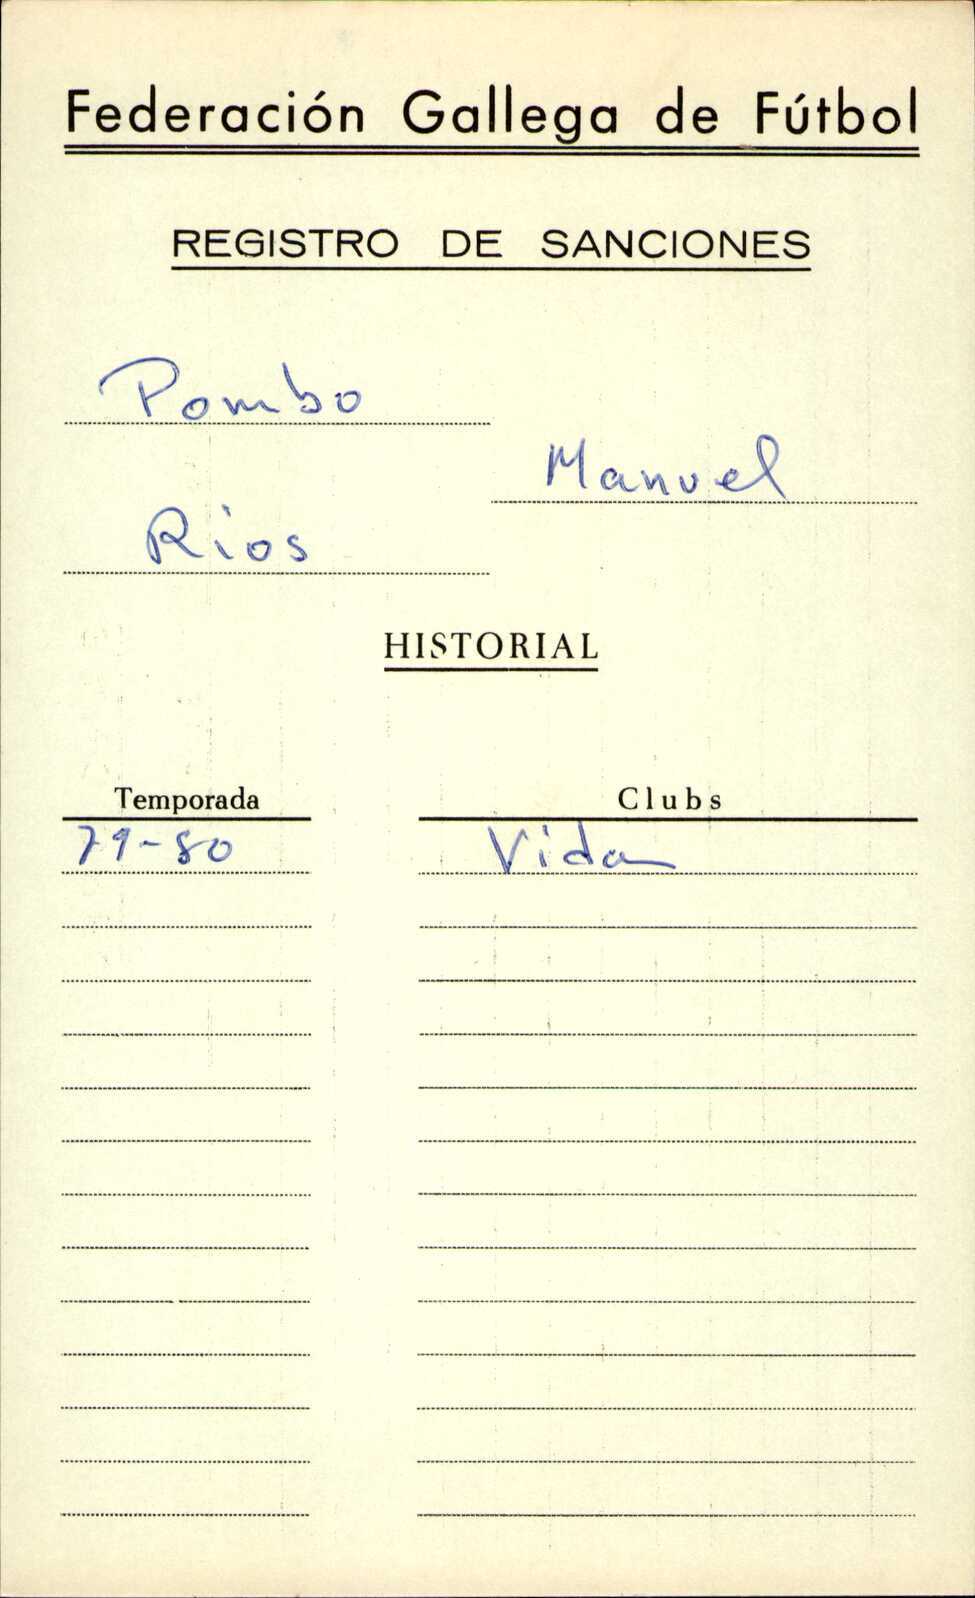 Federación Gallega de Fútbol
REGISTRO DE SANCIONES
Pombo
Manuel
Rios
HISTORIAL
Temporada Clubs
79-80 Vidan